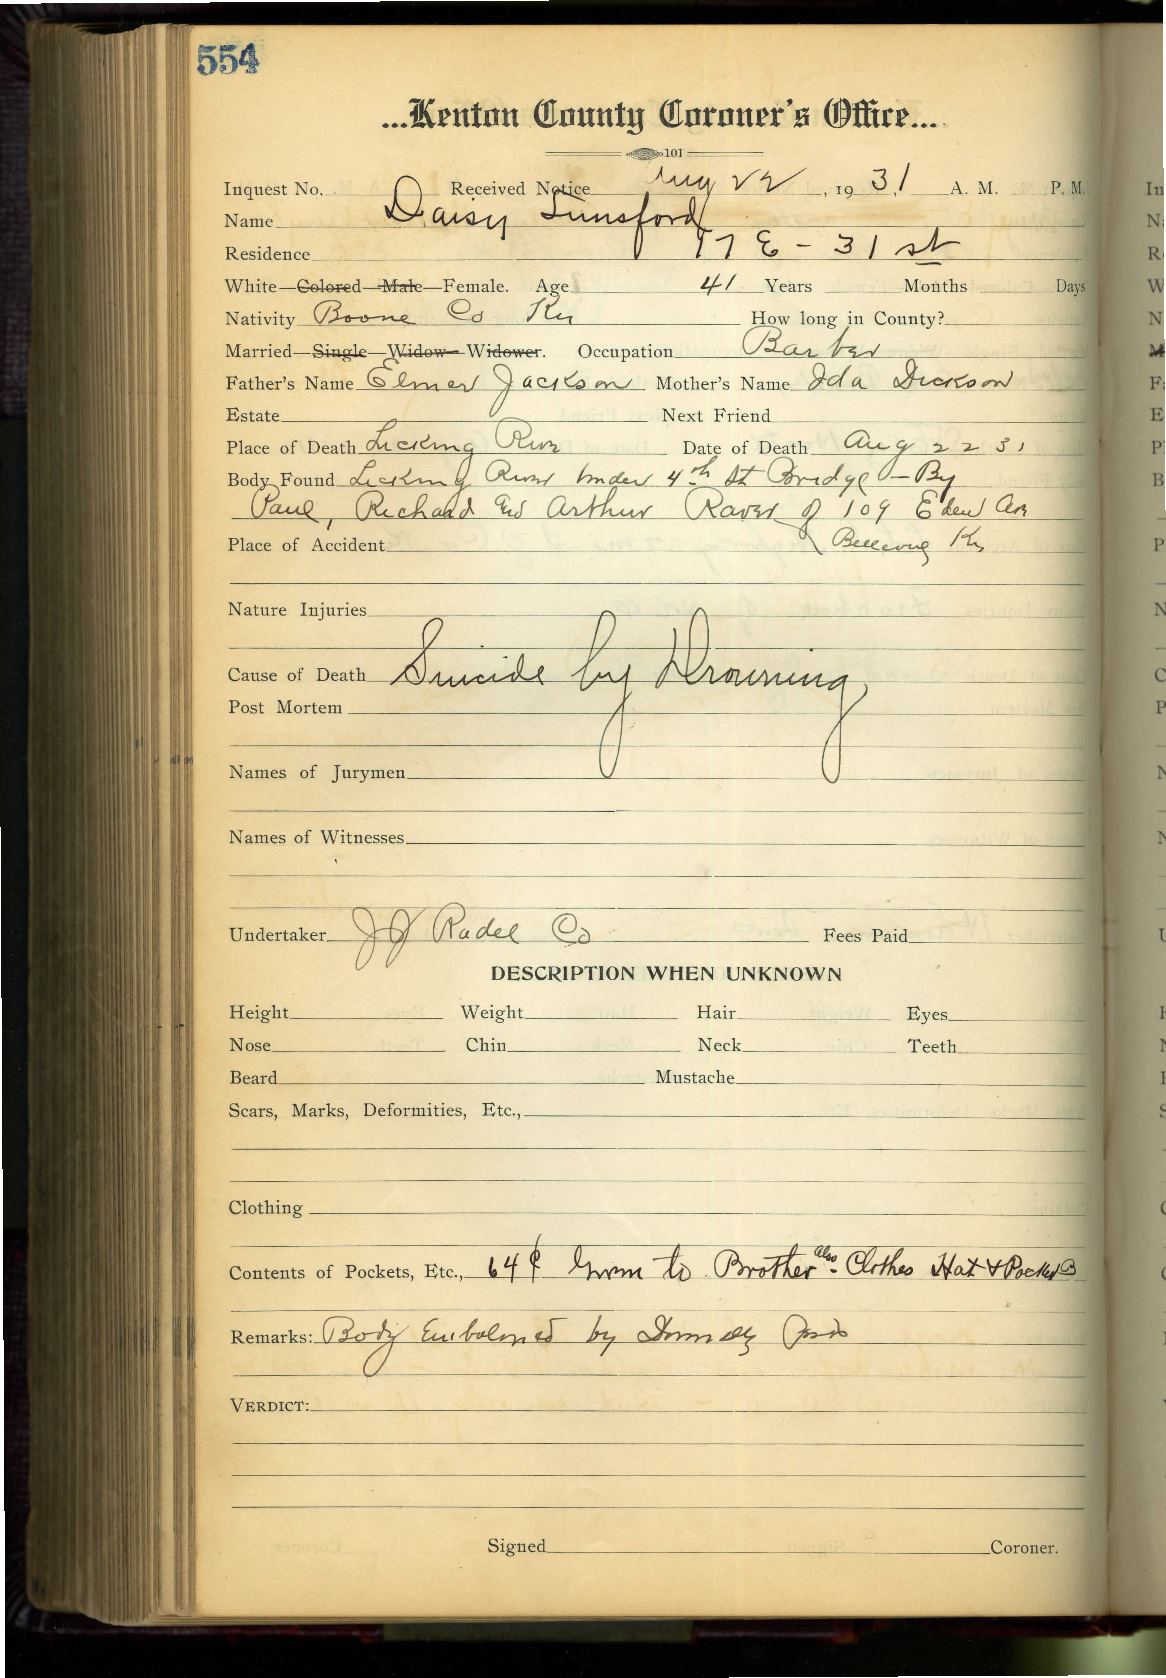 554
...Kenton County Coroner's Office...
101
Inquest No. Received Notice Aug 22, 1931 A. M. P. M.
Name Daisy Lunsford
Residence 17 E - 31 st
White—Colored—Male—Female. Age 41 Years Months Days
Nativity Boone Co Ky How long in County?
Married—Single—Widow—Widower. Occupation Barber
Father's Name Elmer Jackson Mother's Name Ida Dickson
Estate Next Friend
Place of Death Licking River Date of Death Aug 22 31
Body Found Licking River under 4th St Bridge - By
Paul, Richard and Arthur Raver of 109 Eden Ave
Place of Accident Bellevue Ky
Nature Injuries
Cause of Death Suicide by Drowning,
Post Mortem
Names of Jurymen
Names of Witnesses
Undertaker JJ Radel Co Fees Paid
DESCRIPTION WHEN UNKNOWN
Height Weight Hair Eyes
Nose Chin Neck Teeth
Beard Mustache
Scars, Marks, Deformities, Etc.,
Clothing
Contents of Pockets, Etc., 64¢ Given to Brother also Clothes Hat &
Remarks: Body Embalmed by
VERDICT:
Signed Coroner.